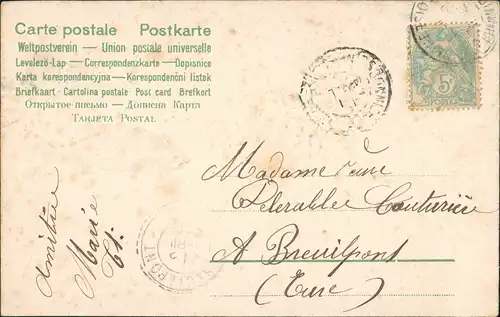 Carte postale   Postkarte
Weltpostverein — Union postale universelle
Levelező-Lap — Correspondenzkarte — Dopisnice
Karta korespondencyjna — Korespondenční lístek
Briefkaart - Cartolina postale - Post card - Brefkort
Открытое письмо — Дописна Карта
Tarjeta Postal
5
Madame
Couturière
A Breuilpont
(Eure)
Amitiée
Marie